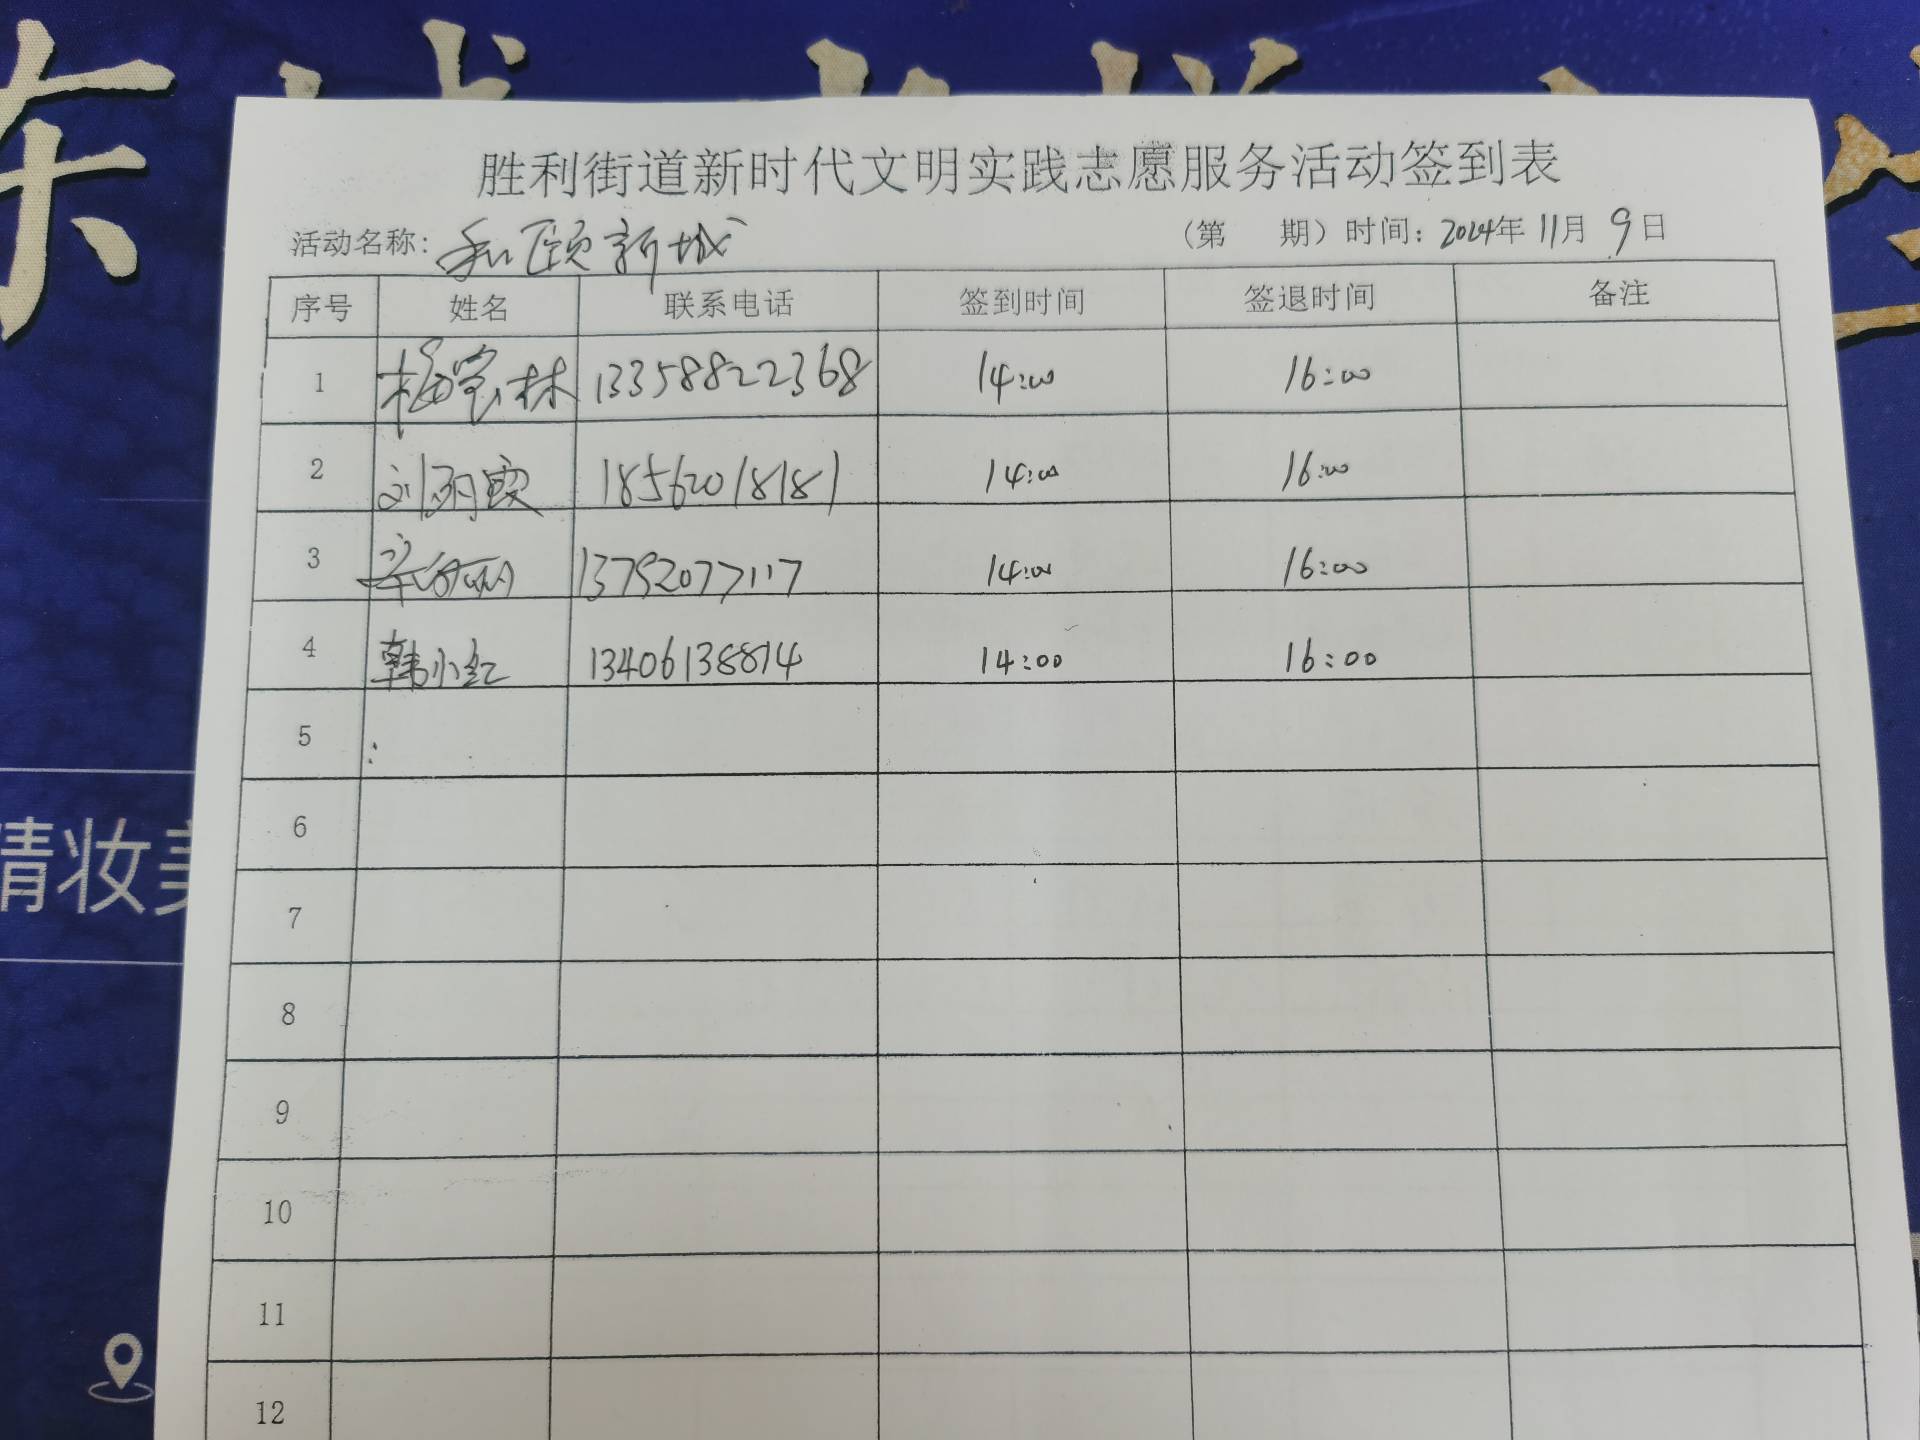 东城
胜利街道新时代文明实践志愿服务活动签到表
活动名称：和颐新城 （第 期）时间：2024年11月9日
序号 姓名 联系电话 签到时间 签退时间 备注
1 林 13358822368 14:00 16:00
2 刘丽霞 18562018181 14:00 16:00
3 13752077117 14:00 16:00
4 韩小红 13406138814 14:00 16:00
5
6
7
8
9
10
11
12
精妆美